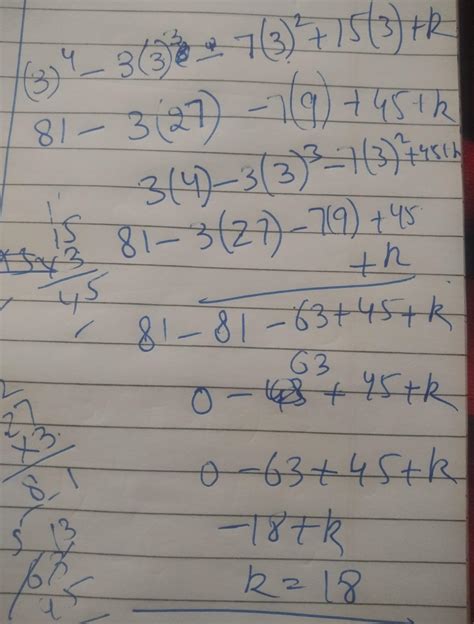 (3)⁴ - 3(3)³ - 7(3)² + 15(3) + k
81 - 3(27) - 7(9) + 45 + k
3(4) - 3(3)³ - 7(3)² + 45 + k
81 - 3(27) - 7(9) + 45
+ k
1
15
× 3
45
81 - 81 - 63 + 45 + k
63
0 - + 45 + k
2
27
× 3
81
0 - 63 + 45 + k
- 18 + k
5 13
63
45
k = 18